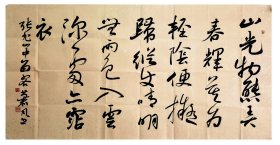 山光物態弄
春輝莫為
輕陰便擬
歸縱使晴明
無雨色入雲
深處亦霑
衣
張旭山中留客